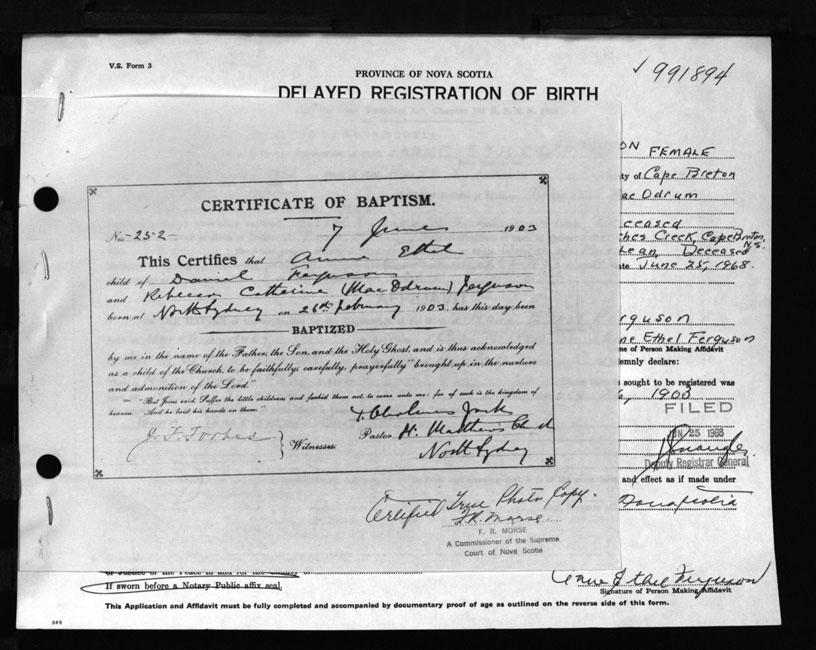 V.S. Form 3
PROVINCE OF NOVA SCOTIA
991894
DELAYED REGISTRATION OF BIRTH
ON FEMALE
ty of Cape Breton
ac Odrum
eceased
ches Creek, Cape Breton, N.S.
Lean, Deceased
te June 25, 1968.
rguson
ne Ethel Ferguson
me of Person Making Affidavit
emnly declare:
sought to be registered was
1903
FILED
UN 25 1968
Deputy Registrar General
and effect as if made under
CERTIFICATE OF BAPTISM.
No. 252
7 June 1903
This Certifies that Annie Ethel
child of Daniel Ferguson
and Rebecca Catherine (MacOdrum) Ferguson
born at North Sydney on 26th February 1903. has this day been
BAPTIZED
by me in the name of the Father, the Son, and the Holy Ghost, and is thus acknowledged
as a child of the Church, to be faithfully, carefully, prayerfully "brought up in the nurture
and admonition of the Lord."
"But Jesus said, Suffer the little children and forbid them not, to come unto me: for of such is the kingdom of
heaven. And he laid his hands on them."
Pastor St. Matthews Church
North Sydney
J. F. Forbes } Witnesses.
Certified True Photo Copy.
F.R. Morse
F. R. MORSE
A Commissioner of the Supreme
Court of Nova Scotia
If sworn before a Notary Public affix seal.
Anne Ethel Ferguson
Signature of Person Making Affidavit
This Application and Affidavit must be fully completed and accompanied by documentary proof of age as outlined on the reverse side of this form.